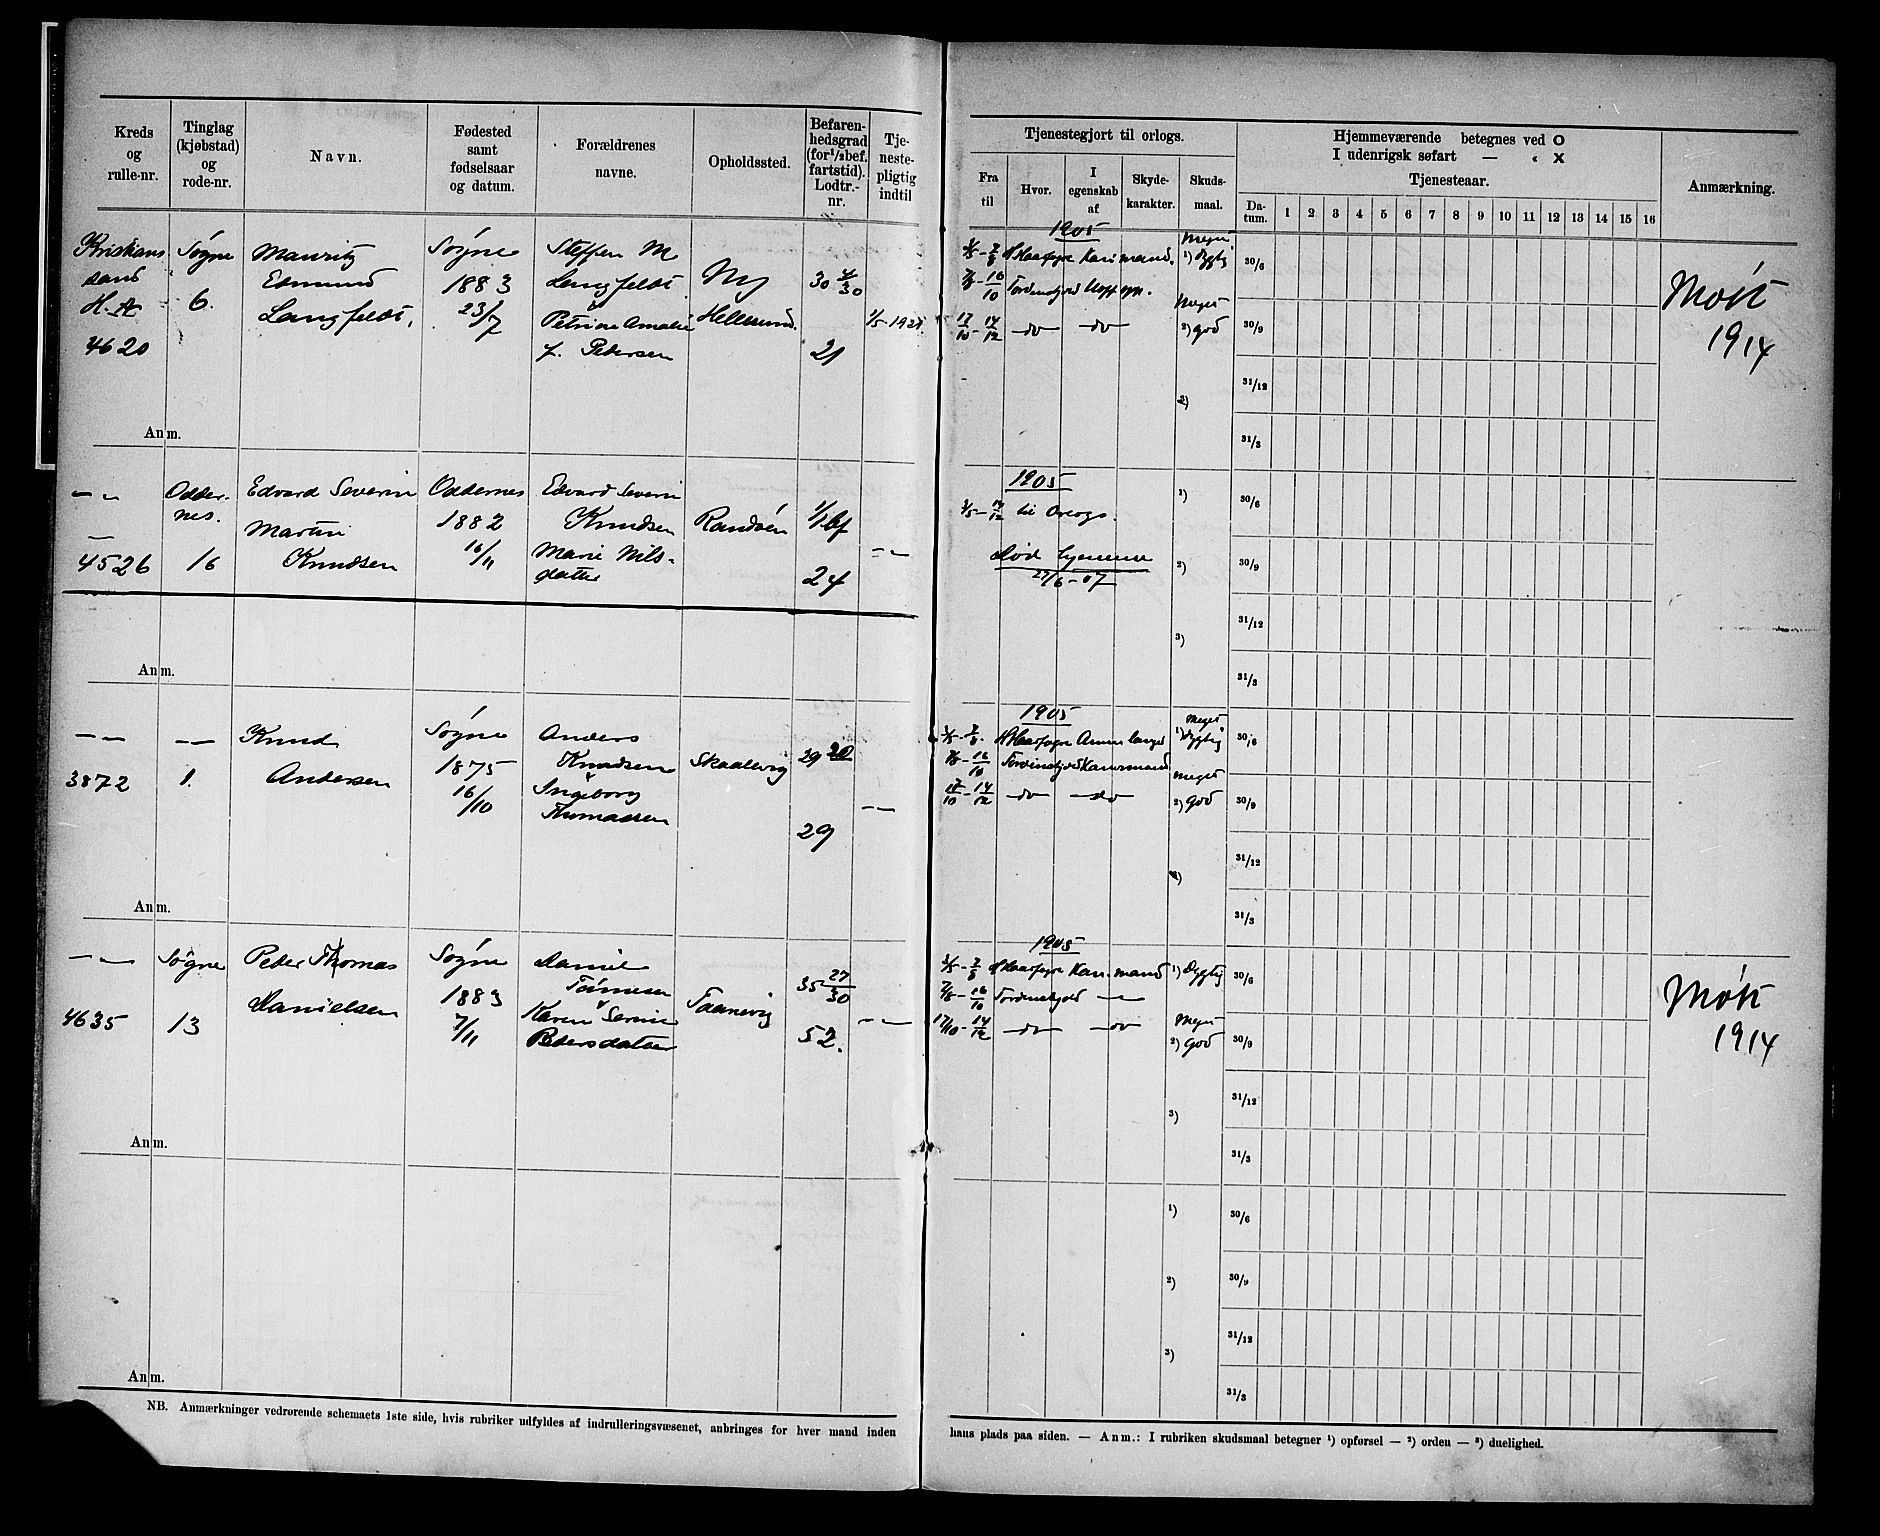 Kreds og rulle-nr.
Tinglag (kjøbstad) og rode-nr.
Navn.
Fødested samt fødselsaar og datum.
Forældrenes navne.
Opholdssted.
Befaren-hedsgrad (for 1/2 bef. fartstid). Lodtr.-nr.
Tje-neste-pligtig indtil
Tjenestegjort til orlogs.
Fra til
Hvor.
I egenskab af
Skyde-karakter.
Skuds-maal.
Hjemmeværende betegnes ved O
I udenrigsk søfart — « X
Tjenesteaar.
Da-tum. 1 2 3 4 5 6 7 8 9 10 11 12 13 14 15 16
Anmærkning.
Kristians
sand
H. A
4620
Søgne
6.
Mauritz
Edmund
Langfeldt.
Søgne
1883
23/7
Steffen M
Langfeldt
Petrine Amalie
f. Petersen
Ny
Hellesund.
30 4/30
21
1905
7/8 - 16/10
17/10 - 14/12 -do- -do-
Meget
1) dygtig
Meget
2) god
2)
30/6
30/9
31/12
31/3
Møtt
1914
Anm.
- -
4526
Odder-
nes.
16
Edvard Severin
Martin
Knudsen
Oddernes
1882
16/11
Edvard Severin
Knudsen
Marie Nils-
datter
Randøen
1/1 bf
24
- -
1905
til Orlogs.
Død hjemme
27/6 - 07
1)
2)
3)
30/6
30/9
31/12
31/3
Anm.
- -
3872
- -
1.
Knud
Andersen
Søgne
1875
16/10
Anders
Knudsen
Ingeborg
Thomassen
Skaalevig
29 20
29
- -
1905
7/8 - 16/10
17/10 - 14/12 -do- -do-
Meget
1) dygtig
Meget
2) god
30/6
30/9
31/12
31/3
Anm.
- -
4635
Søgne
13
Peder Thomas
Danielsen
Søgne
1883
7/11
Daniel
Tønnesen
Karen Serine
Pedersdatter
Taanevig
35 27/30
52.
- -
1905
7/8 - 16/10 Tordenskjold -
17/10 - 14/12 -do- -do-
1) Dygtig
Meget
2) god
3)
30/6
30/9
31/12
31/3
Møtt
1914
Anm.
1)
2)
3)
30/6
30/9
31/12
31/3
Anm.
NB. Anmærkninger vedrørende schemaets 1ste side, hvis rubriker udfyldes af indrulleringsvæsenet, anbringes for hver mand inden
hans plads paa siden. — Anm.: I rubriken skudsmaal betegner 1) opførsel — 2) orden — 3) duelighed.